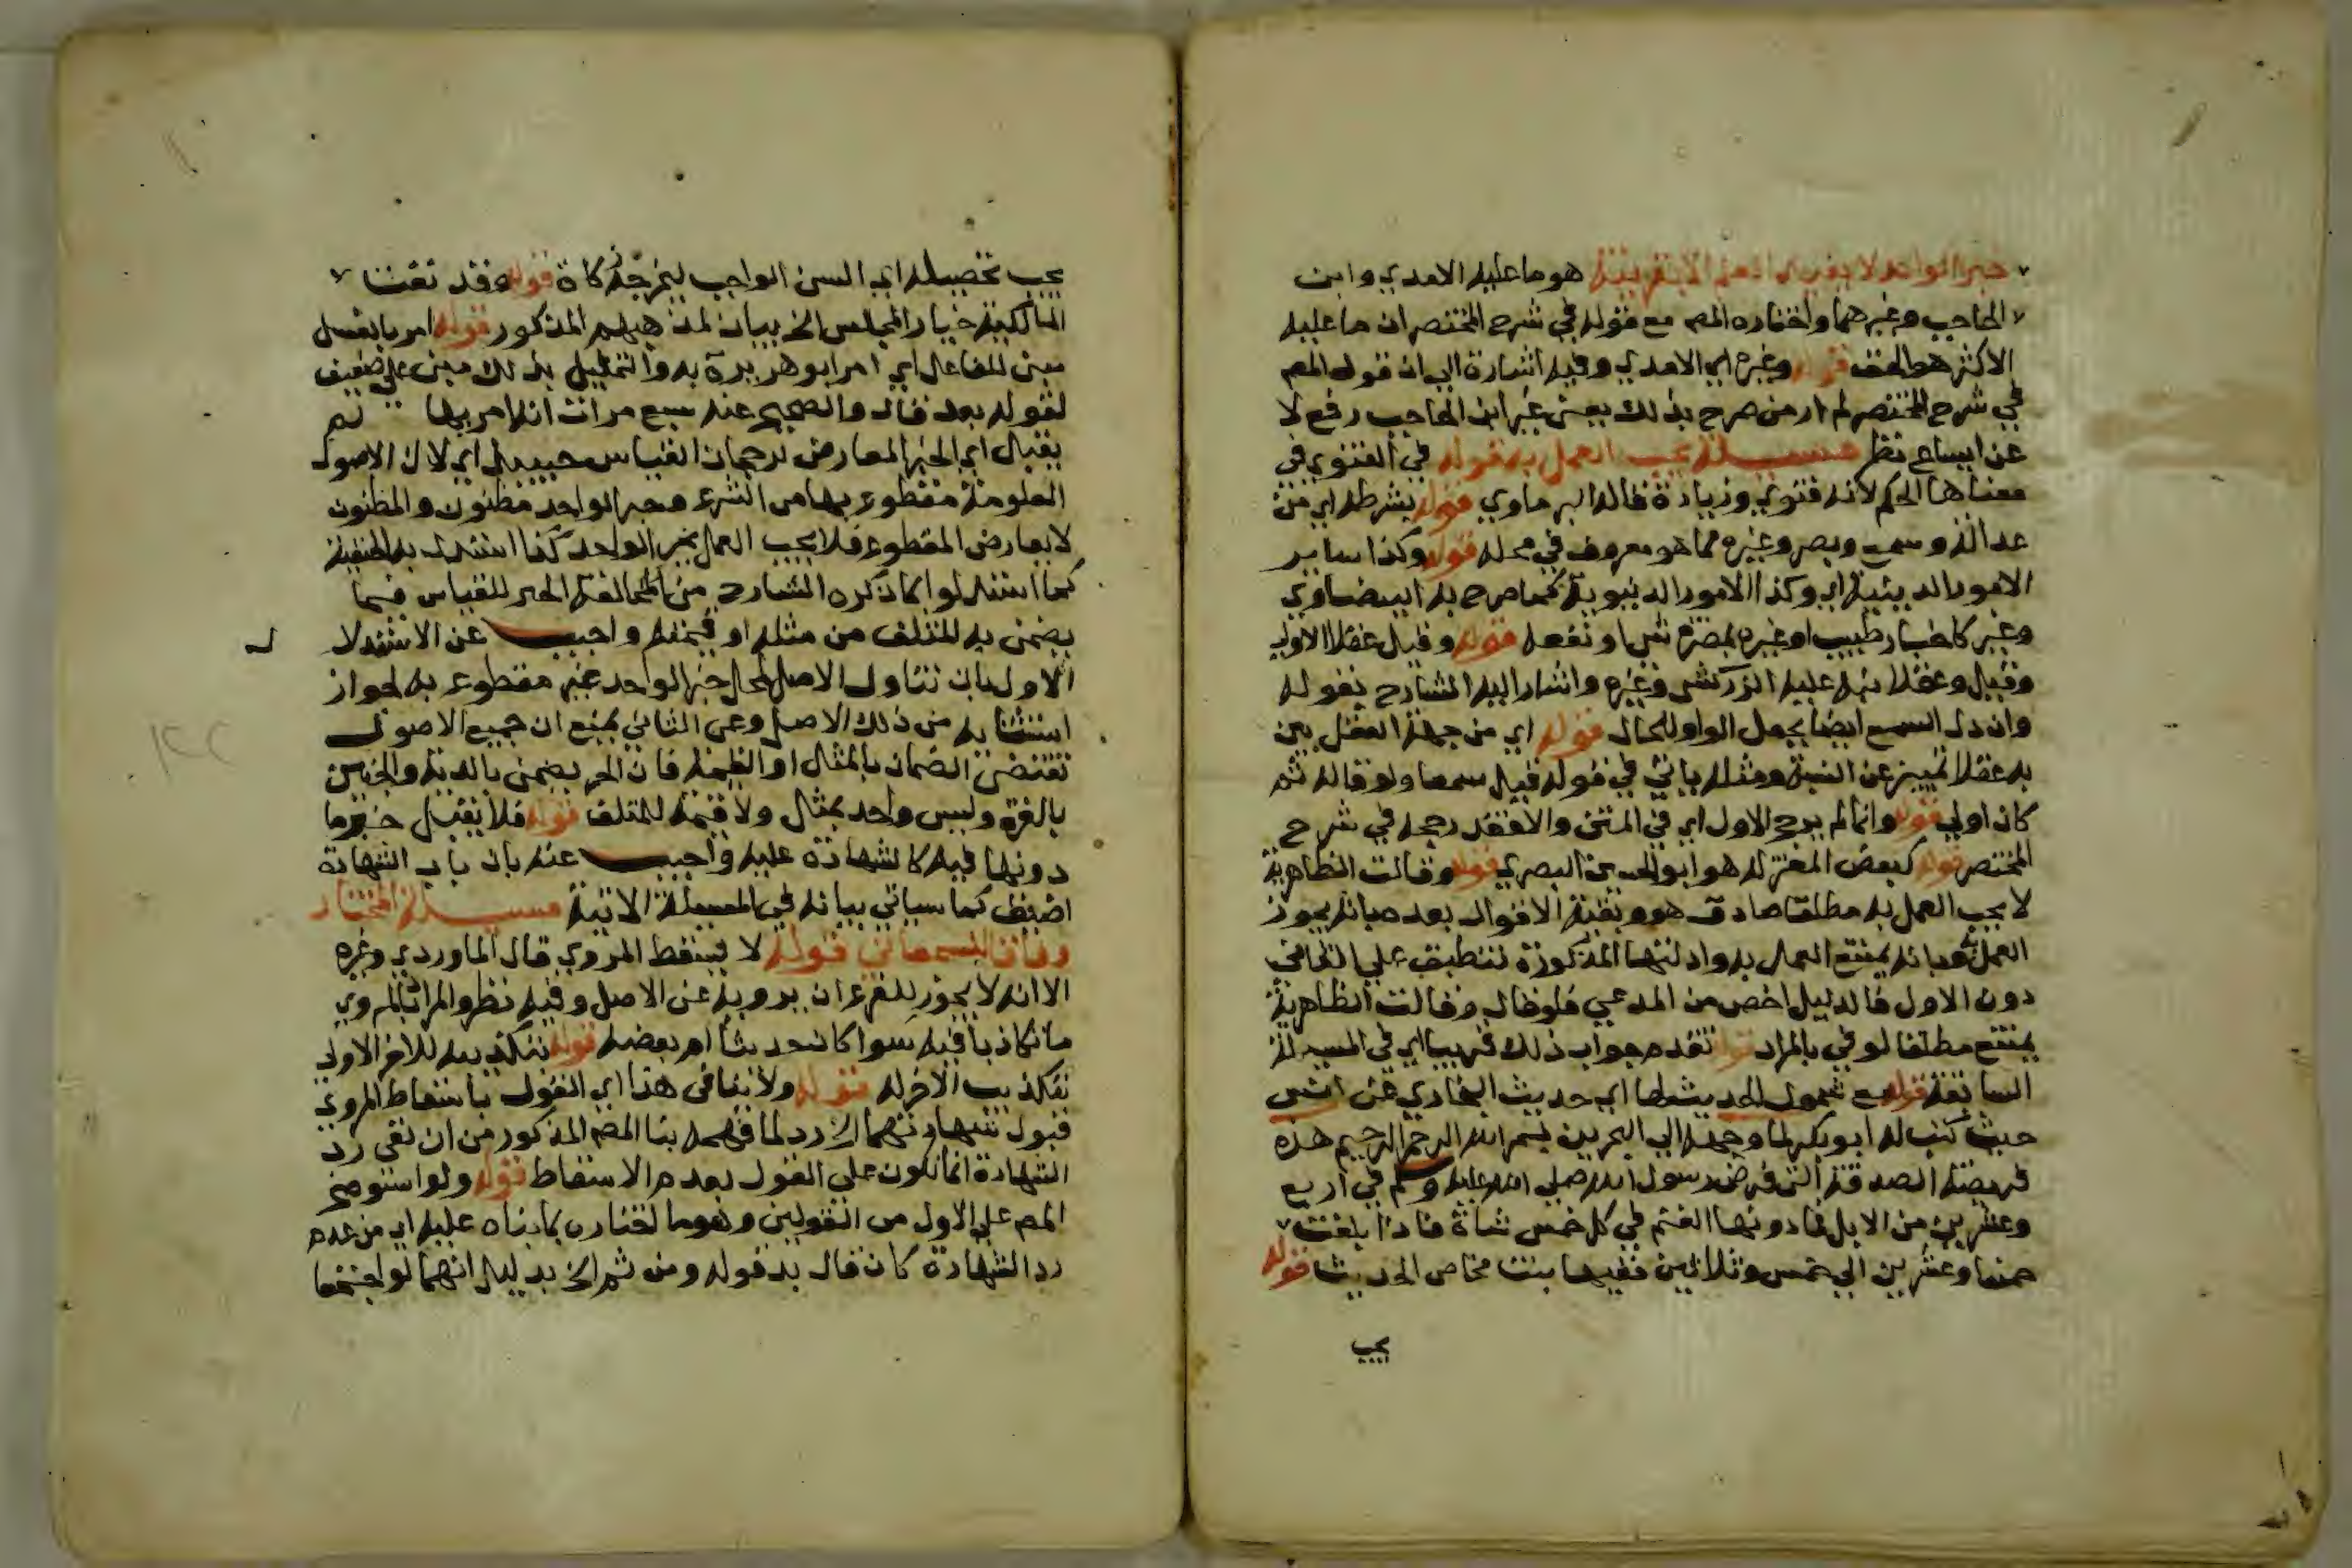 خبر الواحد لا يفيد العلم الا بقرينة هو ما عليه الامدي وابن
الحاجب وغيرهما واختاره المص مع قوله في شرح المختصر ان ما عليه
الاكثر هو الحق قوله وغيره اي الامدي وفيه اشارة الي ان قول المص
في شرح المختصر لم ار من صرح بذلك يعني غير ابن الحاجب رفع لا
عن ايساع نظر مسيلة يجب العمل به قوله في الفتوي في
معناها الحكم لانه فتوي وزيادة قاله البرماوي قوله بشرطه اي من
عدالة وسمع وبصر وغيره مما هو معروف في محله قوله وكذا ساير
الامور الدينية اي وكذا الامور الدنيوية كما صرح به البيضاوي
وغيره كاخبار طبيب او غيره بمضرة شي او نفعه قوله وقيل عقلا الاولي
وقيل وعقلا نبه عليه الزركشي وغيره واشار اليه الشارح بقوله
وان دل السمع ايضا بجعل الواو للحال قوله اي من جهة العقل بين
به عقلا تمييز عن النسبة ومثله ياتي في قوله قيل سمعا ولو قاله ثم
كان اولي قوله وانما لم يرجح الاول اي في المتن والا فقد رجحه في شرح
المختصر قوله كبعض المعتزلة هو ابو الحسين البصري قوله وقالت الظاهرية
لا يجب العمل به مطلقا صادق هو وبقية الاقوال بعد صيانه بجوز
العمل به وبانه يمتنع العمل به وادلتها المذكورة تنطبق علي الثاني
دون الاول فالدليل اخص من المدعي فلو قال وقالت الظاهرية
يمتنع مطلقا لوفي بالمراد قوله تقدم جواب ذلك قريبا اي في المسيلة
السابقة قوله مع شمول الحديث لها اي حديث البخاري عن انس
حيث كتب له ابو بكر لما وجهه الي البحرين بسم الله الرحمن الرحيم هذه
فريضة الصدقة التي فرض رسول الله صلي الله عليه وسلم في اربع
وعشرين من الابل فما دونها الغنم في كل خمس شاة فاذا بلغت
خمسا وعشرين الي خمس وثلاثين ففيها بنت مخاض الحديث قوله
يجب
يجب تحصيله اي السن الواجب ليخرجه زكاة قوله وقد نفت
المالكية خيار المجلس الخ بيان لمذهبهم المذكور قوله امر بالغسل
مبني للفاعل اي امر ابو هريرة به والتمثيل بذلك مبني علي ضعيف
لقوله بعد قال والصحيح عنه سبع مرات انه امر بها لم
يقبل اي الخبر المعارض لرجحان القياس حينيذ اي لان الاصول
المعلومة مقطوع بها من الشرع وخبر الواحد مظنون والمظنون
لا يعارض المقطوع فلا يجب العمل بخبر الواحد كذا استدل به الحنفية
كما استدلوا بما ذكره الشارح من مخالفة الخبر للقياس فيما
يضمن به المتلف من مثله او قيمته واجيب عن الاستدلا ل
الاول بان تناول الاصل لمحل خبر الواحد غير مقطوع به لجواز
استثنايه من ذلك الاصل وعن الثاني بمنع ان جميع الاصول
تقتضي الضمان بالمثل او القيمة فان الحر يضمن بالدية والجنين
بالغرة وليس واحد بمثل ولا قيمة للمتلف قوله فلا يقبل خبر ما
دونها فيه كالشهادة عليه واجيب عنه بان باب الشهادة
اضيق كما سياتي بيانه في المسيلة الاتية مسيلة المختار
وفاقا للسمعاني قوله لا يسقط المروي قال الماوردي وغيره
الا انه لا يجوز للفرع ان يرويه عن الاصل وفيه نظر والمراد بالمروي
ما تكاذبا فيه سوا كان حديثا ام بعضه قوله بتكذيبه للاخر الاولي
تكذيب الاخر له قوله ولا ينافي هذا اي القول باسقاط المروي
قبول شهادتهما الخ رد لما فهمه بنا المص المذكور من ان نفي رد
الشهادة انما يكون علي القول بعدم الاسقاط قوله ولو استوضح
المص علي الاول من القولين وهو ما اختاره بما بناه عليه اي من عدم
رد الشهادة كان قال بدل قوله ومن ثم الخ بدليل انهما لو اجتمعا